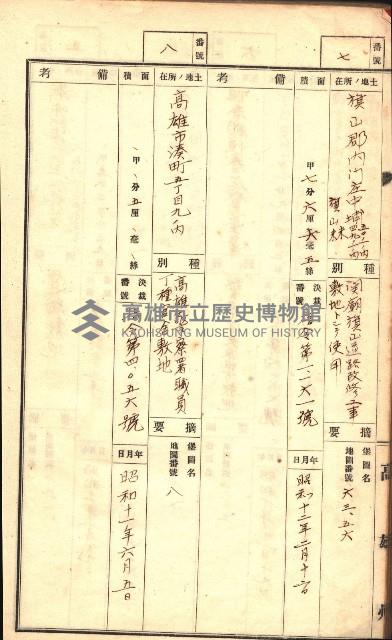 番號
七
土地ノ所在
旗山郡內門庄中埔
面積
甲七分六厘六毫五絲
備考
種別
關廟旗山道路改修工事
敷地トシテ使用
決裁番號
指令第一二六一號
摘要
堡圖名
地圖番號
六三、五六
年月日
昭和十二年二月十六日
番號
八
土地ノ所在
高雄市湊町五丁目九ノ內
面積
、甲、分五厘、毫、絲
備考
種別
高雄警察署職員
丁種宿舍敷地
決裁番號
指令第四〇五六號
摘要
堡圖名
地圖番號
八
年月日
昭和十一年六月五日
高雄州
高雄市立歷史博物館
KAOHSIUNG MUSEUM OF HISTORY